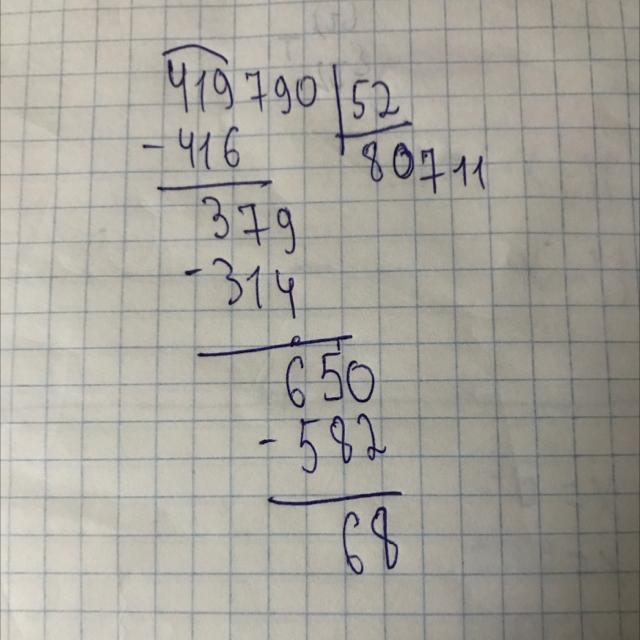 419790 52
-416 80711
379
-314
650
-582
68